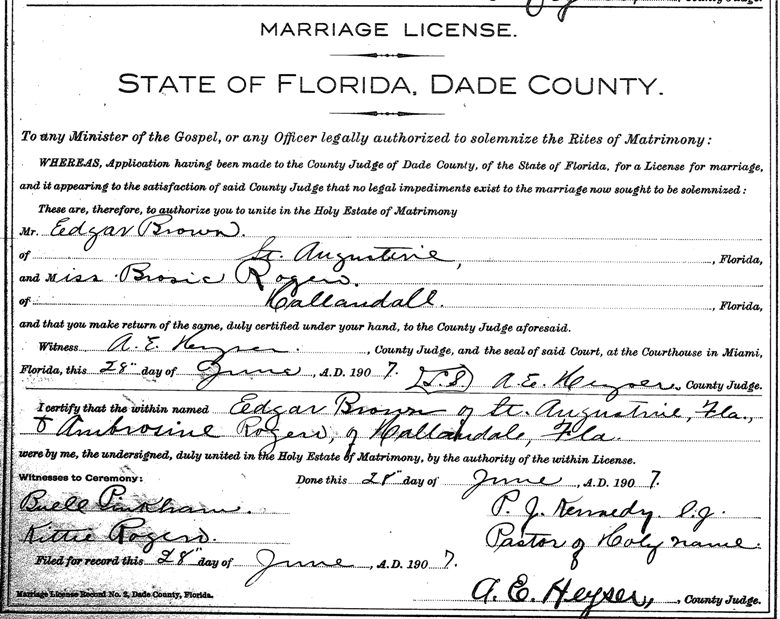 County Judge.
MARRIAGE LICENSE.
STATE OF FLORIDA, DADE COUNTY.
To any Minister of the Gospel, or any Officer legally authorized to solemnize the Rites of Matrimony:
WHEREAS, Application having been made to the County Judge of Dade County, of the State of Florida, for a License for marriage,
and it appearing to the satisfaction of said County Judge that no legal impediments exist to the marriage now sought to be solemnized:
These are, therefore, to authorize you to unite in the Holy Estate of Matrimony
Mr. Edgar Brown.
of St. Augustine, , Florida,
and Miss Brosie Rogers.
of Hallandall. , Florida,
and that you make return of the same, duly certified under your hand, to the County Judge aforesaid.
Witness A. E. Heyser. , County Judge, and the seal of said Court, at the Courthouse in Miami,
Florida, this 28" day of June , A.D. 1907. (L.S.) A. E. Heyser, County Judge.
I certify that the within named Edgar Brown of St. Augustine, Fla.,
& Ambrosine Rogers, of Hallandale, Fla.
were by me, the undersigned, duly united in the Holy Estate of Matrimony, by the authority of the within License.
Witnesses to Ceremony: Done this 28" day of June , A.D. 1907.
Buell Pinkham. P. J. Kennedy S.J.
Kittie Rogers. Pastor of Holy name.
Filed for record this 28" day of June , A.D. 1907.
A. E. Heyser, , County Judge.
Marriage License Record No. 2, Dade County, Florida.